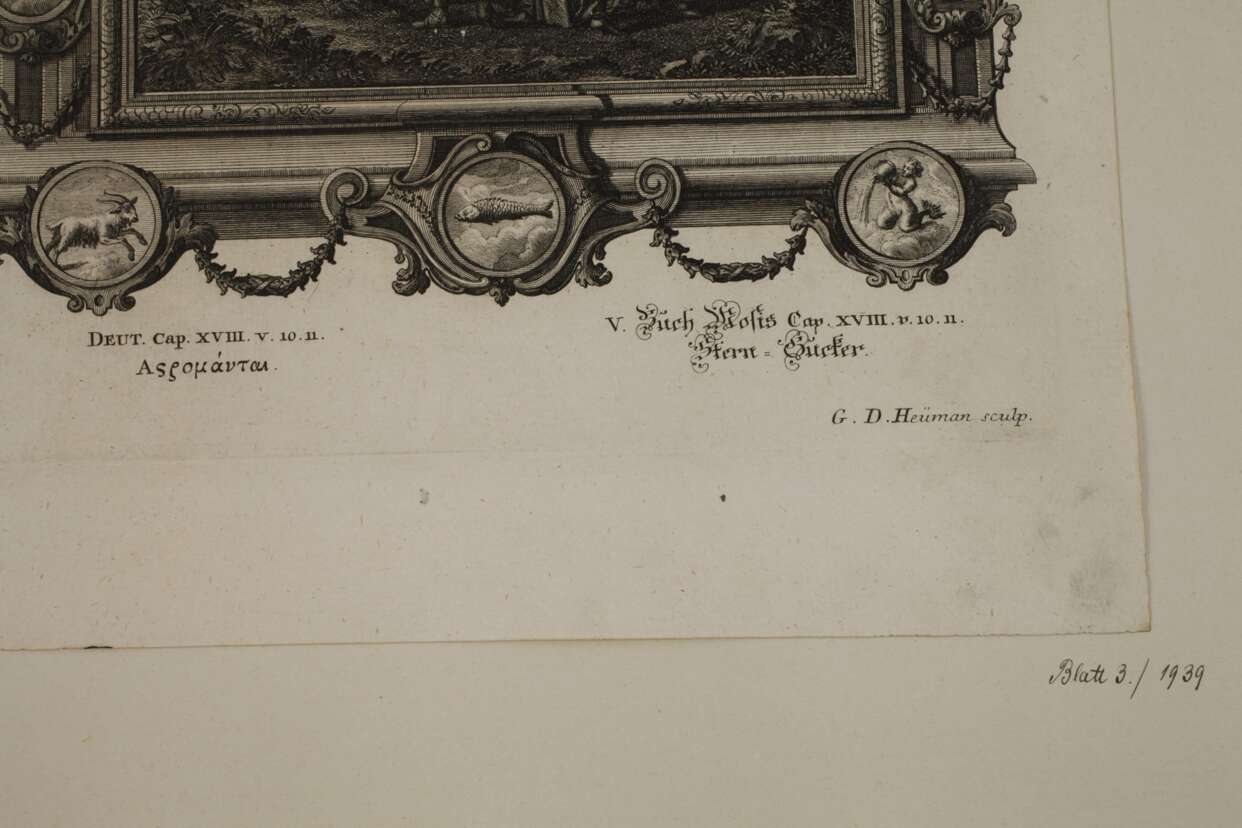 DEUT. Cap. XVIII. v. 10. 11.
Aςρομάνται.
V. Buch Mosis Cap. XVIII. v. 10. 11.
Stern = Gucker.
G. D. Heüman sculp.
Blatt 3./ 1939